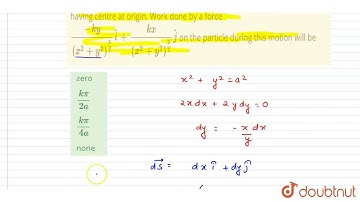 having centre at origin. Work done by a force
-ky/(x²+y²)^{3/2} î + kx/(x²+y²)^{3/2} ĵ on the particle during this motion will be
zero
kπ/2a
kπ/4a
none
x² + y² = a²
2xdx + 2ydy = 0
dy = -x/y dx
ds⃗ = dx î + dy ĵ
doubtnut